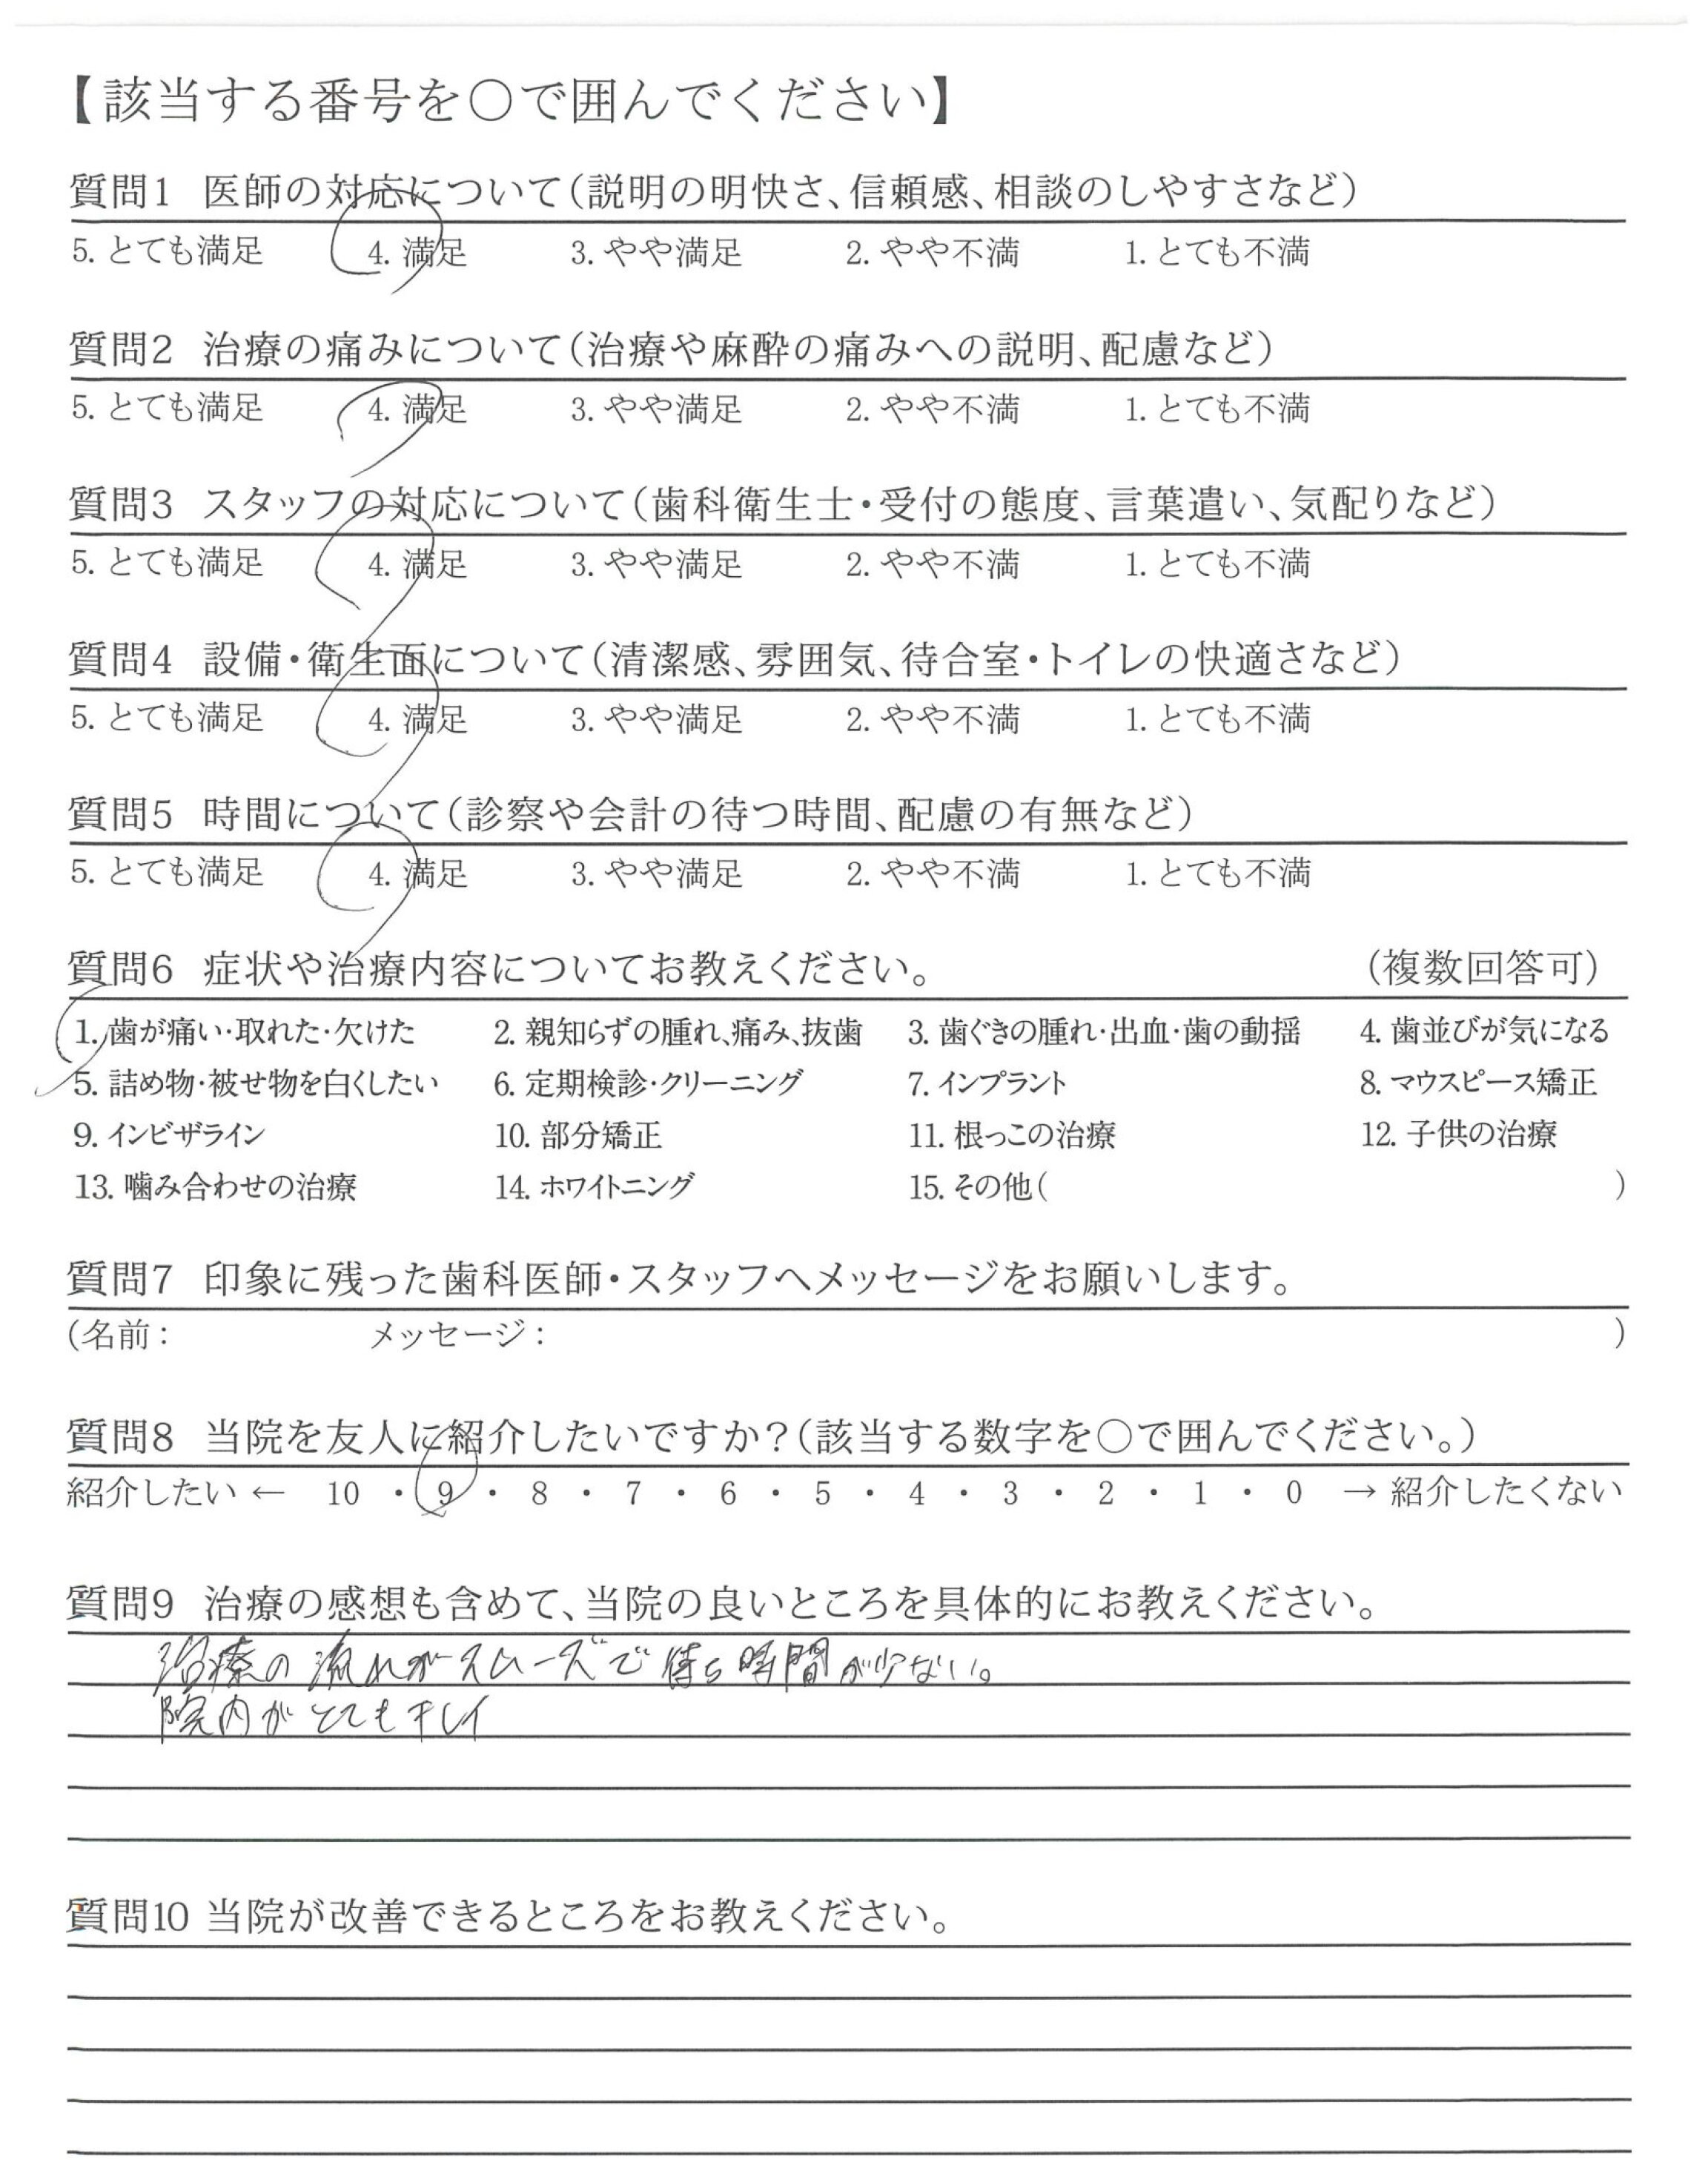 【該当する番号を○で囲んでください】
質問1 医師の対応について(説明の明快さ、信頼感、相談のしやすさなど)
5. とても満足 4. 満足 3. やや満足 2. やや不満 1. とても不満
質問2 治療の痛みについて(治療や麻酔の痛みへの説明、配慮など)
5. とても満足 4. 満足 3. やや満足 2. やや不満 1. とても不満
質問3 スタッフの対応について(歯科衛生士・受付の態度、言葉遣い、気配りなど)
5. とても満足 4. 満足 3. やや満足 2. やや不満 1. とても不満
質問4 設備・衛生面について(清潔感、雰囲気、待合室・トイレの快適さなど)
5. とても満足 4. 満足 3. やや満足 2. やや不満 1. とても不満
質問5 時間について(診察や会計の待つ時間、配慮の有無など)
5. とても満足 4. 満足 3. やや満足 2. やや不満 1. とても不満
質問6 症状や治療内容についてお教えください。 (複数回答可)
1. 歯が痛い・取れた・欠けた 2. 親知らずの腫れ、痛み、抜歯 3. 歯ぐきの腫れ・出血・歯の動揺 4. 歯並びが気になる
5. 詰め物・被せ物を白くしたい 6. 定期検診・クリーニング 7. インプラント 8. マウスピース矯正
9. インビザライン 10. 部分矯正 11. 根っこの治療 12. 子供の治療
13. 噛み合わせの治療 14. ホワイトニング 15. その他( )
質問7 印象に残った歯科医師・スタッフへメッセージをお願いします。
(名前: メッセージ: )
質問8 当院を友人に紹介したいですか?(該当する数字を○で囲んでください。)
紹介したい ← 10 ・ 9 ・ 8 ・ 7 ・ 6 ・ 5 ・ 4 ・ 3 ・ 2 ・ 1 ・ 0 → 紹介したくない
質問9 治療の感想も含めて、当院の良いところを具体的にお教えください。
治療の流れがスムーズで待ち時間が少ない。
院内がとてもキレイ
質問10 当院が改善できるところをお教えください。